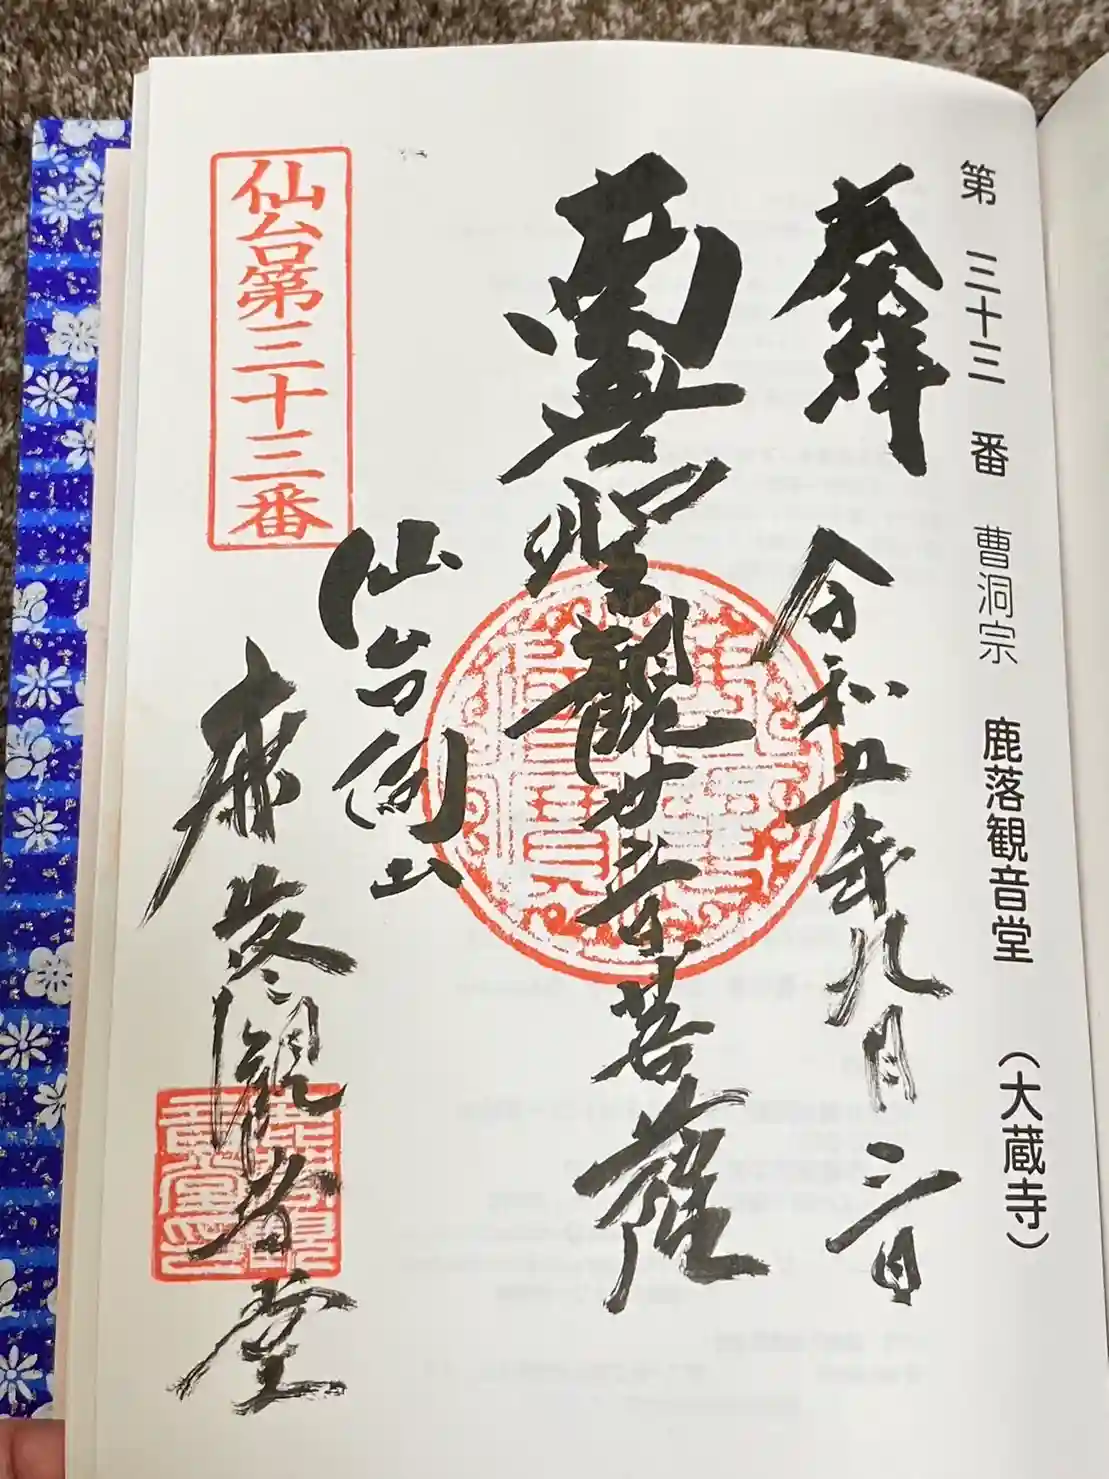 第三十三番 曹洞宗 鹿落観音堂 (大蔵寺)
奉拝
令和五年九月三日
南無聖観世音菩薩
仙台
鹿落観音堂
仙台第三十三番